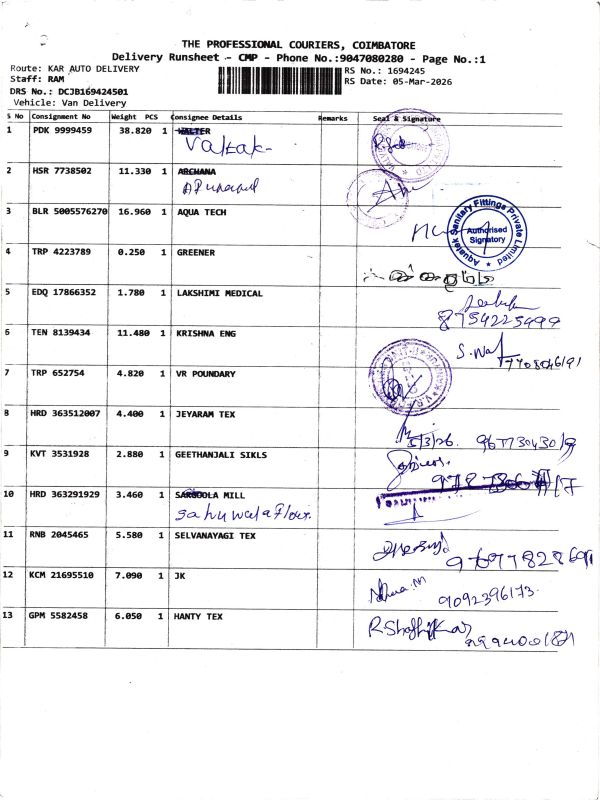 THE PROFESSIONAL COURIERS, COIMBATORE
Delivery Runsheet - CMP - Phone No.:9047080280 - Page No.:1
Route: KAR AUTO DELIVERY
RS No.: 1694245
Staff: RAM
RS Date: 05-Mar-2026
DRS No.: DCJB169424501
Vehicle: Van Delivery
S No Consignment No Weight PCS Consignee Details Remarks Seal & Signature
1 PDK 9999459 38.820 1 WALTER
2 HSR 7738502 11.330 1 ARCHANA
3 BLR 5005576270 16.960 1 AQUA TECH
Aquatek Sanitary Fittings Private Limited
Authorised
Signatory
4 TRP 4223789 0.250 1 GREENER
5 EDQ 17866352 1.780 1 LAKSHIMI MEDICAL
8754225499
6 TEN 8139434 11.480 1 KRISHNA ENG
7708046191
7 TRP 652754 4.820 1 VR POUNDARY
8 HRD 363512007 4.400 1 JEYARAM TEX
5/3/26.
9 KVT 3531928 2.880 1 GEETHANJALI SIKLS
10 HRD 363291929 3.460 1 MILL
Sahuwala Flour.
11 RNB 2045465 5.580 1 SELVANAYAGI TEX
12 KCM 21695510 7.090 1 JK
9092396173.
13 GPM 5582458 6.050 1 HANTY TEX